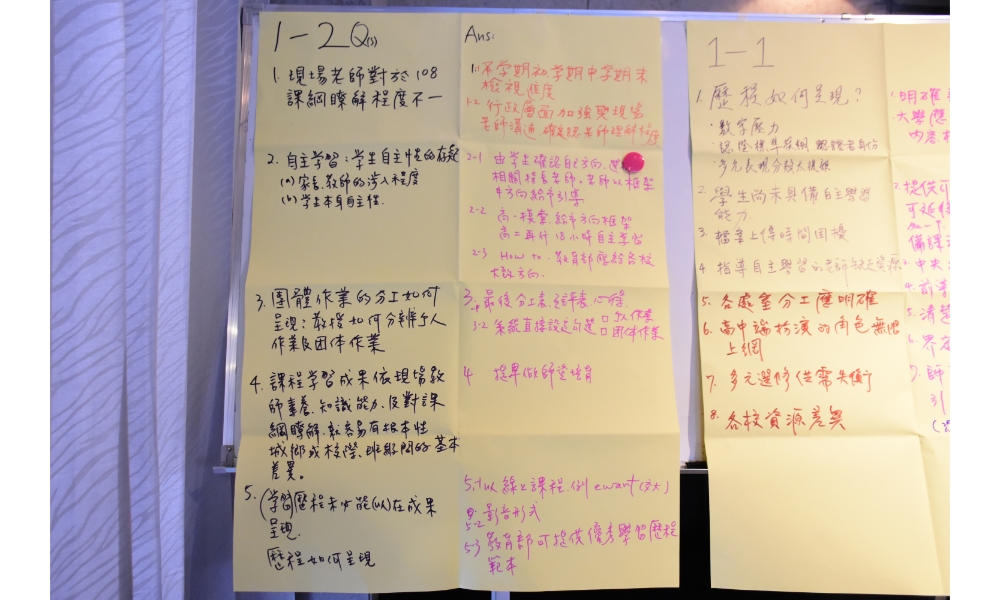 1-2Q(s)
1. 現場老師對於108
課綱瞭解程度不一
2. 自主學習:學生自主性的存疑
(a) 家長、教師的涉入程度
(b) 學生本身自主性.
3. 團體作業的分工如何
呈現:教授如何分辨个人
作業及团体作業
4. 課程學習成果依現場教
師素養.知識能力.及對課
綱瞭解.就容易有根本性
城鄉或校際、班級間的基本
差異。
5. (學習)歷程未必能(以)在成果
呈現.
歷程如何呈現
Ans:
1-1 學期初.學期中學期末
檢視進度
1-2 行政層面加強與現場
老師溝通 確定老師理解程度
2-1 由學生確認自己方向.
相關擅長老師.老師以框架
方向給予引導
2-2 高一摸索.給予方向框架
高二再行18小時自主學習
2-3 How to. 教育部應給各校
大致方向.
3-1 最後分工表、心得
3-2 系統直接設定勾選 □个人作業
□团体作業
4 提早做師資培育
5-1 以線上課程.例 ewant(交大)
5-2 影音形式
5-3 教育部可提供優秀學習歷程
範本
1-1
1. 歷程如何呈現?
·數字壓力
·多元表現分數太模糊
2. 學生尚未具備自主學習
能力.
3. 檔案上傳時間困擾
4. 指導自主學習的老師
5. 各處室分工應明確
6. 高中端扮演的角色無限
上綱
7. 多元選修供需失衡
8. 各校資源差異
1.明確
大學應
內容
2.提供可
可延
備課
中央
4.
5.清楚
6.界定
7.師
引